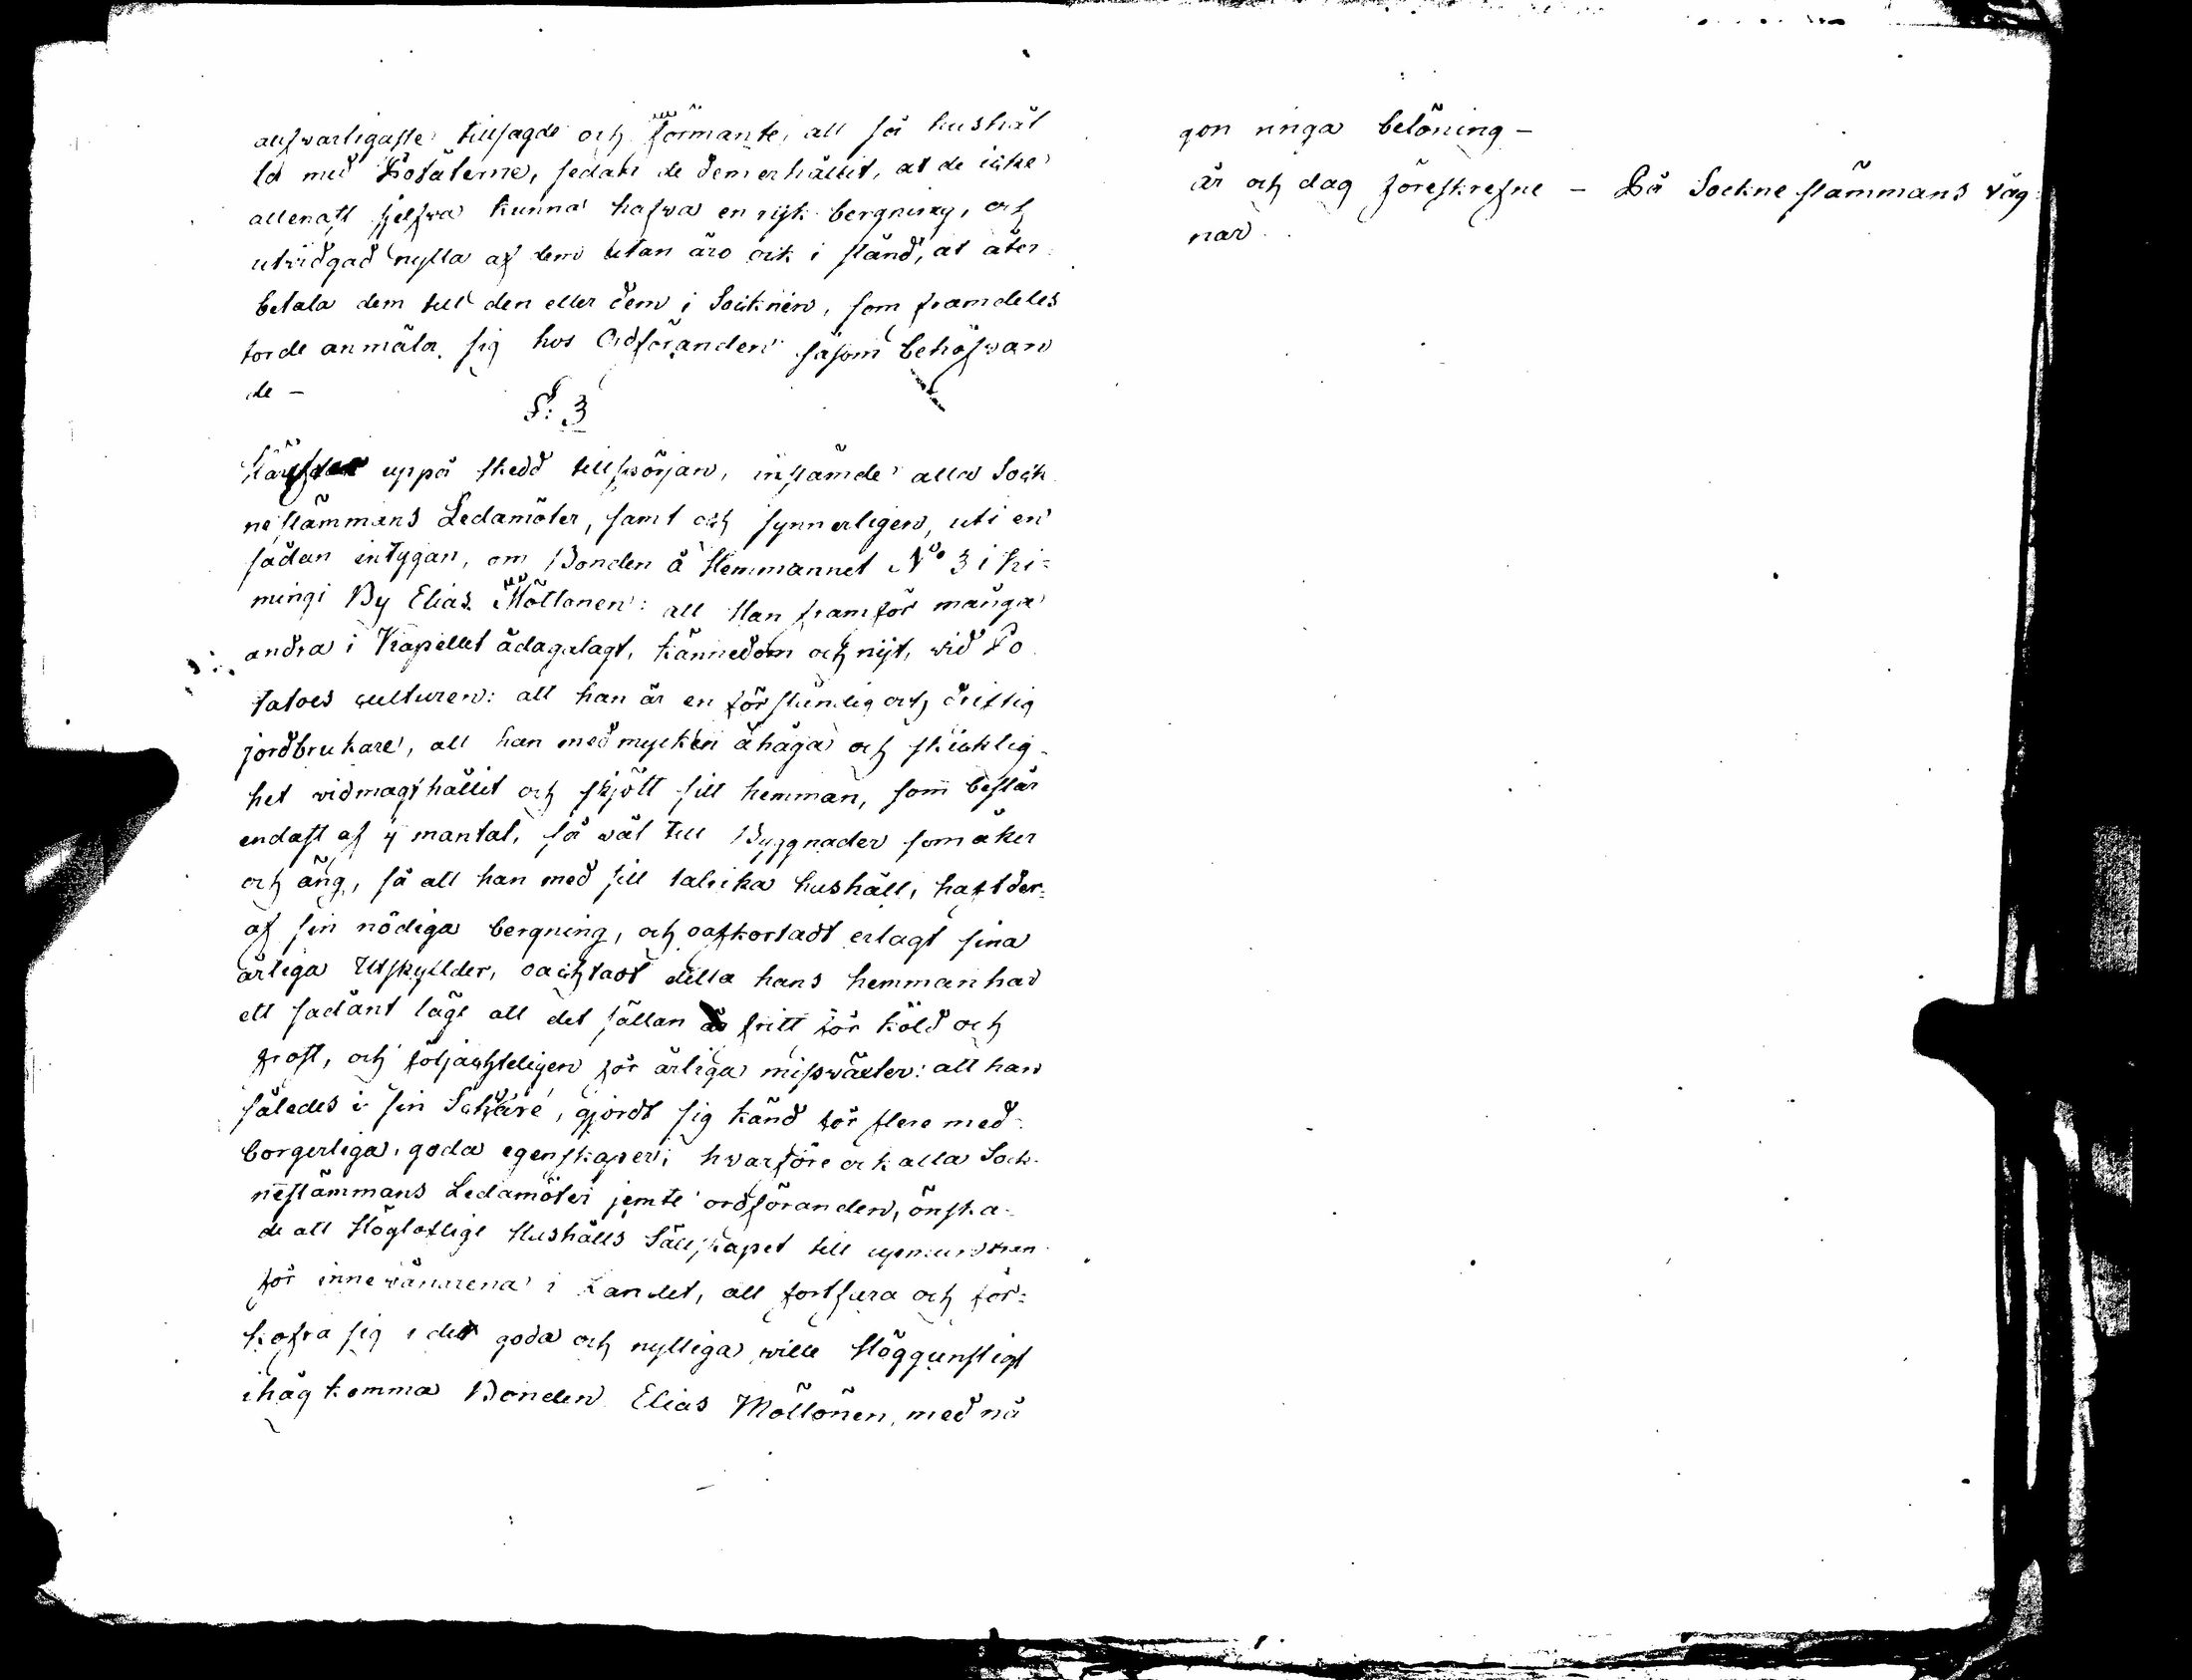 allfwarligaste tillsagde och förmante, att så hushål
la med Potäterne, sedan de dem erhållit, at de icke
allenast sjelfwa kunna hafwa en rijk bergning, och
utvidgad nytta af dem utan äro ock i stånd, at åter
betala dem till den eller dem i Socknen, som framdeles
torde anmäla sig hos Ordföranden såsom behöfwan
de –
§: 3
Härefter uppå skedd tillspörjan, instämde alla Sock
nestämmans Ledamöter, samt och synnerligen, uti en
sådan intygan, om Bonden å Hemmannet No 3 i Ki=
mingi By Elias Möttonen: att Han framför många
andra i Kapellet ådagalagt, kännedom och nijt, wid Po
tatoes culturen: att han är en förståndig och driftig
jordbrukare, att han med mycken åhåga och skicklig-
het widmagthållit och skjött sitt hemman, som består
endast af ¼ mantal, så wäl till Byggnader som åker
och äng, så att han med sitt talrika hushåll, haft der=
af sin nödiga bergning, och oafkortadt erlagt sina
årliga Utskyllder, oachtadt detta hans hemman har
ett sådant läge att det sällan är fritt för köld och
frost, och följachteligen för årliga missväxter: att han
således i sin Sphäre, gjordt sig känd för flere med-
borgerliga, goda egenskaper; hwarföre ock alla Sock-
nestämmans Ledamöter jemte ordföranden, önska-
de att Högloflige Hushålls Sällskapet till upmuntran
för innevånarena i Landet, att fortfara och för=
kofra sig i det goda och nyttiga wille Höggunstigt
ihåg komma Bonden Elias Möttönen, med nå
gon ringa belöning –
år och dag föreskrefne – På Sockne stämmans väg
nar